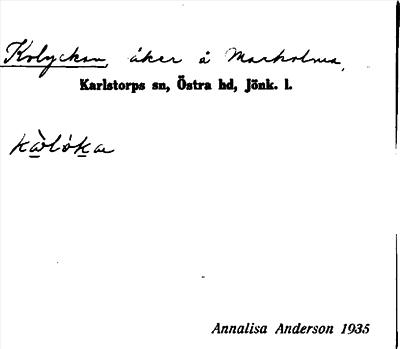 Kolyckan, åker å Markolma,
Karlstorps sn, Östra hd, Jönk. l.
Annalisa Anderson 1935